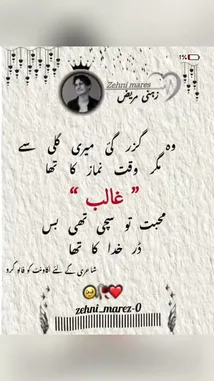 1%
Zehni mares
ذہنی مریض
وہ گزر گئ میری گلی سے
مگر وقت نماز کا تھا
” غالب “
محبت تو سچی تھی بس
ڈر خدا کا تھا
شاعری کے لئے اکاونٹ کو فالو کرو
zehni_marez-0